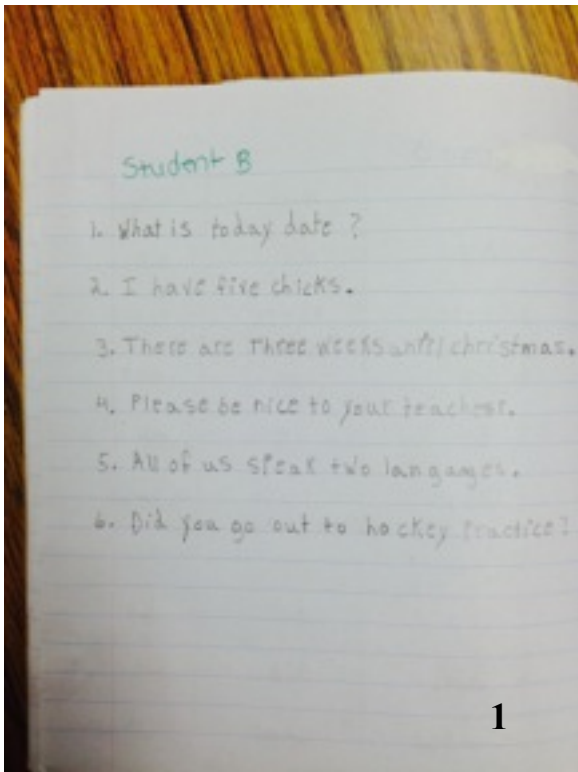 Student B
1. What is today date ?
2. I have five chicks.
3. There are Three weeks until christmas.
4. Please be nice to your teacher.
5. All of us speak two langages.
6. Did you go out to hockey practice?
1